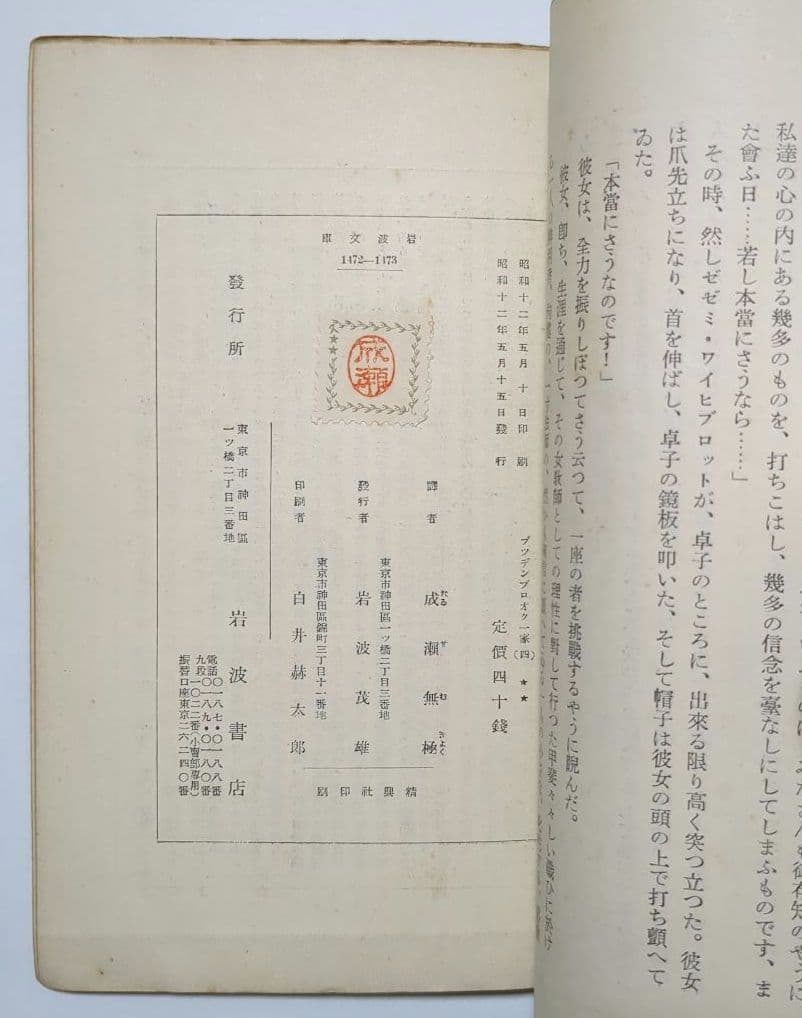 私達の心の内にある幾多のものを、打ちこはし、幾多の信念を臺なしにしてしまふものです、ま
た會ふ日……若し本當にさうなら……」
その時、然しゼゼミ・ワイヒブロットが、卓子のところに、出來る限り高く突つ立つた。彼女
は爪先立ちになり、首を伸ばし、卓子の鏡板を叩いた、そして帽子は彼女の頭の上で打ち顫へて
ゐた。
「本當にさうなのです！」
彼女は、全力を振りしぼつてさう云つて、一座の者を挑戰するやうに睨んだ。
彼女、卽ち、生涯を通じて、その女敎師としての理性に對して行つた甲斐々々しい戰ひに於け
昭和十二年五月十日印刷
昭和十二年五月十五日發行
ブツデンブロオク一家(四) ★★
定價四十錢
岩波文庫
1472—1473
成瀨
譯者 成瀨無極
なるせむきよく
東京市神田區一ツ橋二丁目三番地
發行者 岩波茂雄
東京市神田區錦町三丁目十一番地
印刷者 白井赫太郎
精興社印刷
發行所
東京市神田區
一ツ橋二丁目三番地
岩波書店
電話〇一八七・〇一八八番
九段〇一八九・〇一八〇番
一〇二二番(小賣部專用)
振替口座東京二六二四〇番